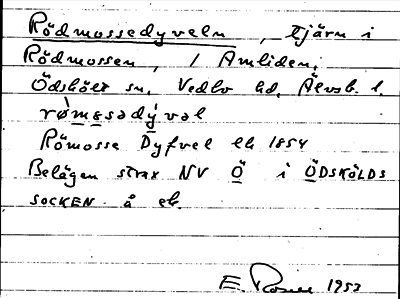 Rödmossedyveln, tjärn i
Rödmossen, i Åmliden,
Ödskölt sn. Vedbo hd. Älvsb. l.
römsedyvəl
Römosse Dyfvel ek 1854
Belägen strax NV Ö i ÖDSKÖLDS
SOCKEN å ek.
E. 1953